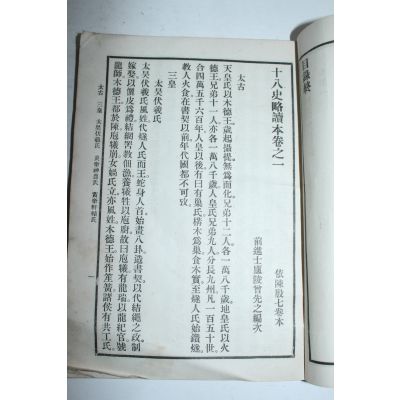 目錄終
十八史略讀本卷之一
依陳殷七卷本
前進士廬陵曾先之編次
太古
天皇氏以木德王。歲起攝提。無爲而化。兄弟十二人。各一萬八千歲。地皇氏以火
德王。兄弟十一人。亦各一萬八千歲。人皇氏兄弟九人。分長九州。凡一百五十世。
合四萬五千六百年。人皇以後。有曰有巢氏。構木爲巢。食木實。至燧人氏。始鑽燧。
教人火食。在書契以前。年代國都不可攷。
三皇
太昊伏羲氏
太昊伏羲氏。風姓。代燧人氏而王。蛇身人首。始畫八卦。造書契。以代結繩之政。制
嫁娶。以儷皮爲禮。結網罟。教佃漁。養犧牲以庖廚。故曰庖犧。有龍瑞。以龍紀官。號
龍師。木德王。都於陳。庖犧崩。女媧氏立。亦風姓。木德王。始作笙簧。諸侯有共工氏。
太古 三皇 太昊伏羲氏 炎帝神農氏 黃帝軒轅氏 一